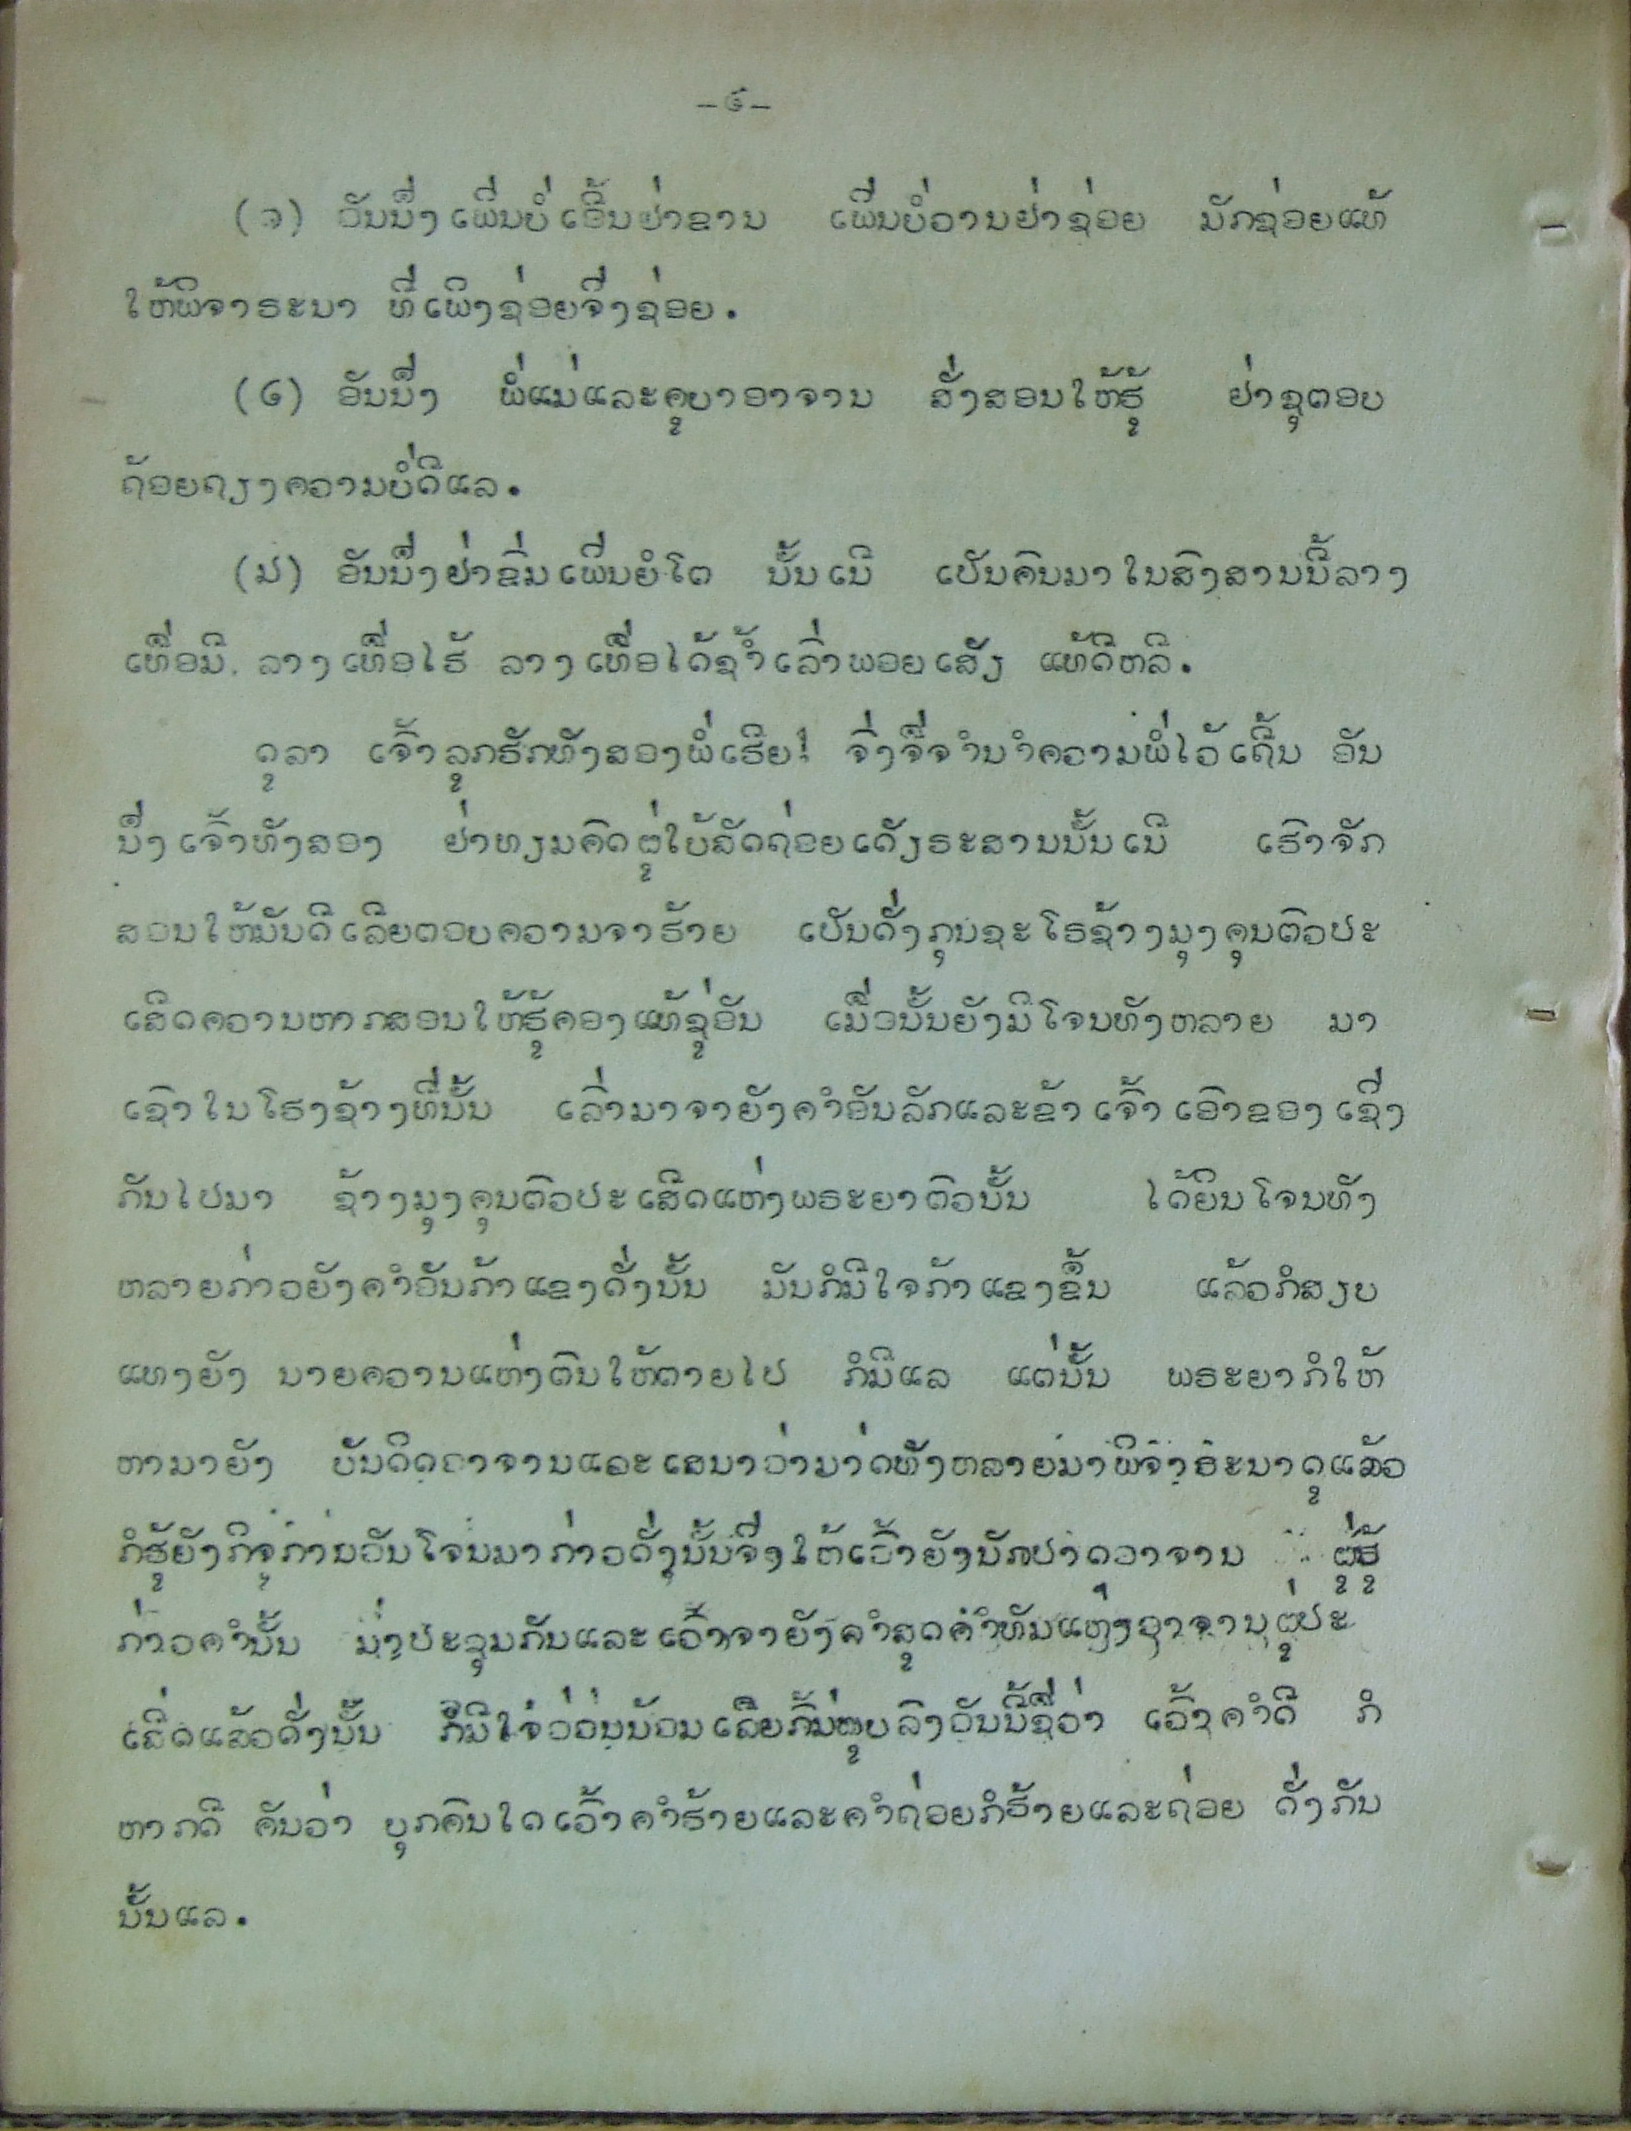 -໖-
(໑) ອັນນຶ່ງເພີ່ນບໍ່ເອີ້ນຢ່າຂານ ເພີ່ນບໍ່ວານຢ່າຊ່ອຍ ມັກຊ່ອຍແທ້
ໃຫ້ພິຈາຣະນາ ທີ່ເພິງຊ່ອຍຈຶ່ງຊ່ອຍ.
(໒) ອັນນຶ່ງ ພໍ່ແມ່ແລະຄູບາອາຈານ ສັ່ງສອນໃຫ້ຮູ້ ຢ່າຂຸຕອບ
ຖ້ອຍຖຽງຄວາມບໍ່ດີແລ.
(໓) ອັນນຶ່ງຢ່າຂົ່ມເພີ່ນຍໍໂຕ ນັ້ນເນີ ເປັນຄົນມາໃນສົງສານນີ້ລາງ
ເທື່ອມີ. ລາງເທື່ອໄຮ້ ລາງເທື່ອໄດ້ຊ້ຳເລົ່າພອຍເສັຽ ແທ້ດີຫລີ.
ດູລາ ເຈົ້າລູກຮັກທັງສອງພໍ່ເຮີຍ! ຈົ່ງຈື່ຈຳນຳຄວາມພໍ່ໄວ້ເຖີ້ນ ອັນ
ນຶ່ງເຈົ້າທັງສອງ ຢ່າທຽມຄິດຜູ່ໃບ້ສັດຖ່ອຍເດັຽຣະສານນັ້ນເນີ ເຮົາຈັກ
ສອນໃຫ້ມັນດີເລີຍຕອບຄວາມຈາຮ້າຍ ເປັນດັ່ງກຸນຊະໂຣຊ້າງມຸງຄຸນຕົວປະ
ເສີດຄວານຫາກສອນໃຫ້ຮູ້ຄອງແທ້ຊູ່ອັນ ເມື່ອນັ້ນຍັງມີໂຈນທັງຫລາຍ ມາ
ເຊົາໃນໂຮງຊ້າງທີ່ນັ້ນ ເລົ່າມາຈາຍັງຄຳອັນລັກແລະຂ້າເຈົ້າເອົາຂອງເຊິ່ງ
ກັນໄປມາ ຊ້າງມຸງຄຸນຕົວປະເສີດແຫ່ງພຣະຍາຕົວນັ້ນ ໄດ້ຍິນໂຈນທັງ
ຫລາຍກ່າວຍັງຄຳອັນກ້າແຂງດັ່ງນັ້ນ ມັນກໍມີໃຈກ້າແຂງຂຶ້ນ ແລ້ວກໍສຽບ
ແທງຍັງ ນາຍຄວານແຫ່ງຕົນໃຫ້ຕາຍໄປ ກໍມີແລ ແຕ່ນັ້ນ ພຣະຍາກໍໃຫ້
ຫາມາຍັງ ບັນດິດອາຈານແລະເສນາອ່າມາດທັງຫລາຍມາພິຈາຣະນາດູແລ້ວ
ກໍຮູ້ຍັງກິຈການອັນໂຈນມາກ່າວດັ່ງນັ້ນຈຶ່ງໃຫ້ເອົ້າຍັງນັກປາດອາຈານ ຜູ່ຮູ້
ກ່າວຄຳນັ້ນ ມາປະຊຸມກັນແລະເວົ້າຈາຍັງຄຳສູດຄຳທັມແຫ່ງອາຈານຜູ່ປະ
ເສີດແລ້ວດັ່ງນັ້ນ ກໍມີໃຈອ່ອນນ້ອມເລີຍກົ້ມໝູບລົງອັນນີ້ຊື່ວ່າ ເວົ້າຄຳດີ ກໍ
ຫາກດີ ຄັນວ່າ ບຸກຄົນໃດເວົ້າຄຳຮ້າຍແລະຄຳຖ່ອຍກໍຮ້າຍແລະຖ່ອຍ ດັ່ງກັນ
ນັ້ນແລ.